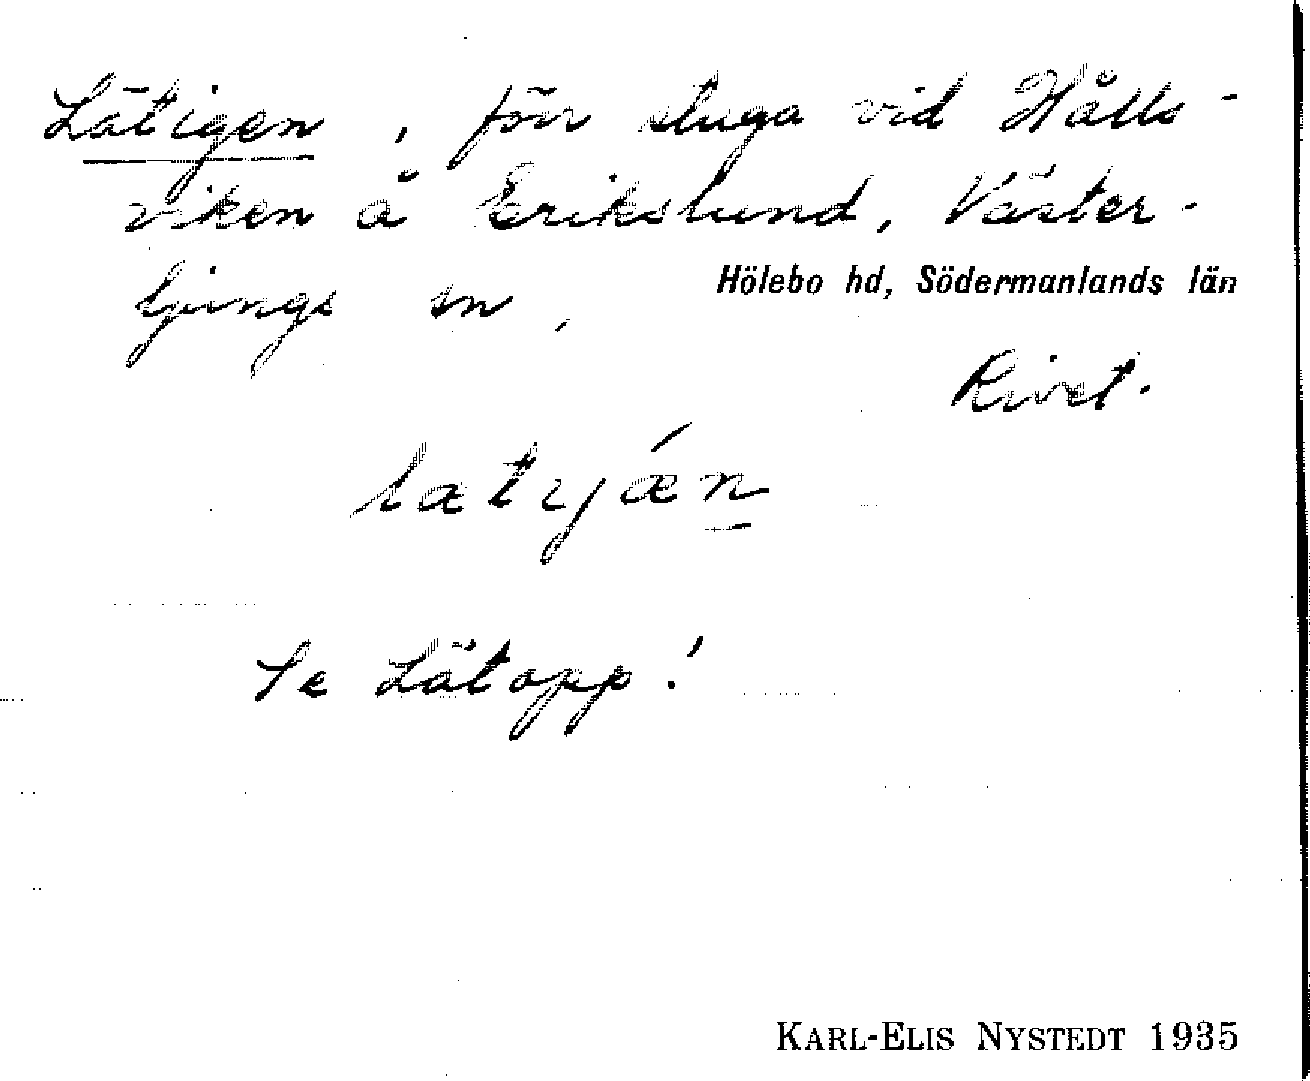 Lätigen, förr stuga vid Hålls-
viken å Erikslund, Väster-
ljungs sn,
Hölebo hd, Södermanlands län
Rivet.
lætıján
Se Lätopp!
KARL-ELIS NYSTEDT 1935